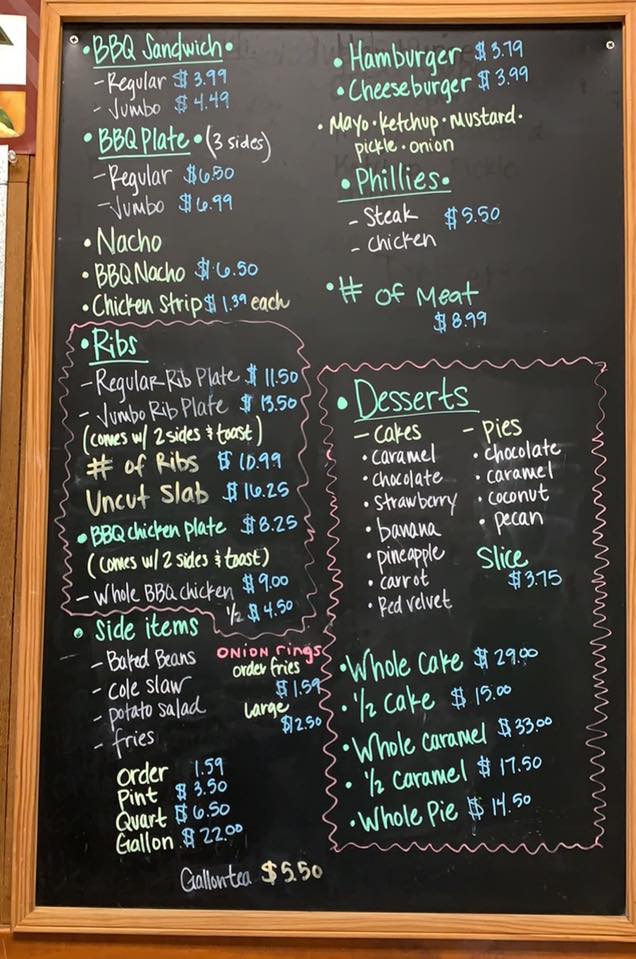 • BBQ Sandwich •
- Regular $3.99
- Jumbo $4.49
• BBQ Plate • (3 sides)
- Regular $6.50
- Jumbo $6.99
• Nacho
• BBQ Nacho $6.50
• Chicken Strip $1.39 each
• Ribs
- Regular Rib Plate $11.50
- Jumbo Rib Plate $13.50
(comes w/ 2 sides & toast)
# of Ribs $10.99
Uncut Slab $16.25
• BBQ chicken plate $8.25
(comes w/ 2 sides & toast)
- Whole BBQ chicken $9.00
1/2 $4.50
• Side items
- Baked Beans
- Cole slaw
- potato salad
- fries
ONION rings
order fries
$1.59
Large
$12.50
Order 1.59
Pint $3.50
Quart $6.50
Gallon $22.00
Gallon tea $5.50
• Hamburger $3.79
• Cheeseburger $3.99
• Mayo • Ketchup • Mustard •
pickle • onion
• Phillies •
- Steak $5.50
- Chicken
• # of Meat
$8.99
• Desserts
- Cakes
• caramel
• chocolate
• strawberry
• banana
• pineapple
• carrot
• Red velvet
- Pies
• chocolate
• caramel
• coconut
• pecan
Slice
$3.75
• Whole Cake $29.00
• 1/2 Cake $15.00
• Whole caramel $33.00
• 1/2 Caramel $17.50
• Whole Pie $14.50